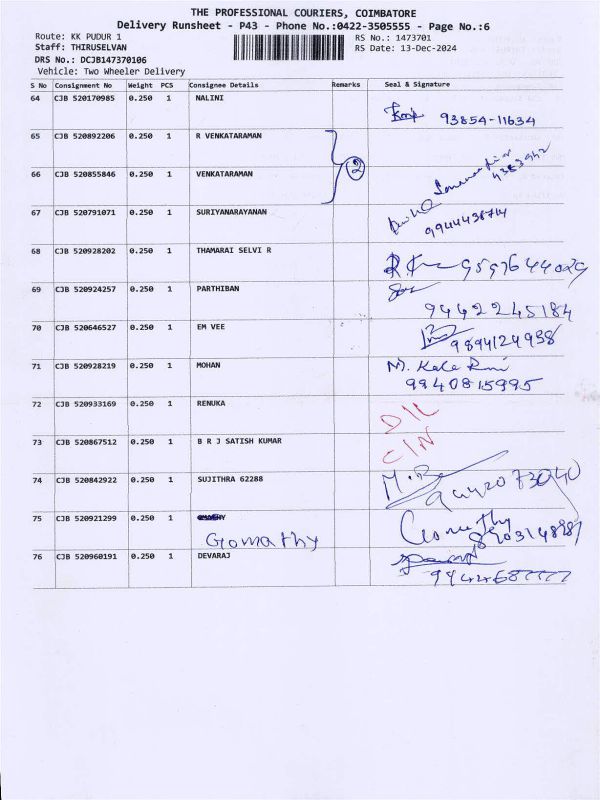 THE PROFESSIONAL COURIERS, COIMBATORE
Delivery Runsheet - P43 - Phone No.:0422-3505555 - Page No.:6
Route: KK PUDUR 1
RS No.: 1473701
Staff: THIRUSELVAN
RS Date: 13-Dec-2024
DRS No.: DCJB147370106
Vehicle: Two Wheeler Delivery
S No Consignment No Weight PCS Consignee Details Remarks Seal & Signature
64 CJB 520170985 0.250 1 NALINI
93854-11634
65 CJB 520892206 0.250 1 R VENKATARAMAN
2
66 CJB 520855846 0.250 1 VENKATARAMAN
67 CJB 520791071 0.250 1 SURIYANARAYANAN
68 CJB 520928202 0.250 1 THAMARAI SELVI R
9597644029
69 CJB 520924257 0.250 1 PARTHIBAN
9442245184
70 CJB 520646527 0.250 1 EM VEE
9894124998
71 CJB 520928219 0.250 1 MOHAN
9940815995
72 CJB 520933169 0.250 1 RENUKA
D/L
73 CJB 520867512 0.250 1 B R J SATISH KUMAR
C/N
74 CJB 520842922 0.250 1 SUJITHRA 62288
75 CJB 520921299 0.250 1
Gomathy Gomathy
76 CJB 520960191 0.250 1 DEVARAJ